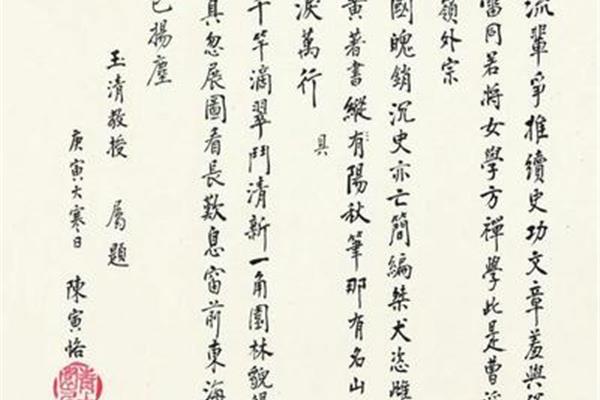 流輩爭推續史功文章羞與俗
雷同若將女學方禪學此是曹溪
嶺外宗
國魄銷沉史亦亡簡編桀犬恣雌
黃著書縱有陽秋筆那有名山
具
淚萬行
千竿滴翠鬥清新一角園林貌得
真忽展圖看長歎息窗前東海
已揚塵
玉清教授 屬題
庚寅大寒日 陳寅恪